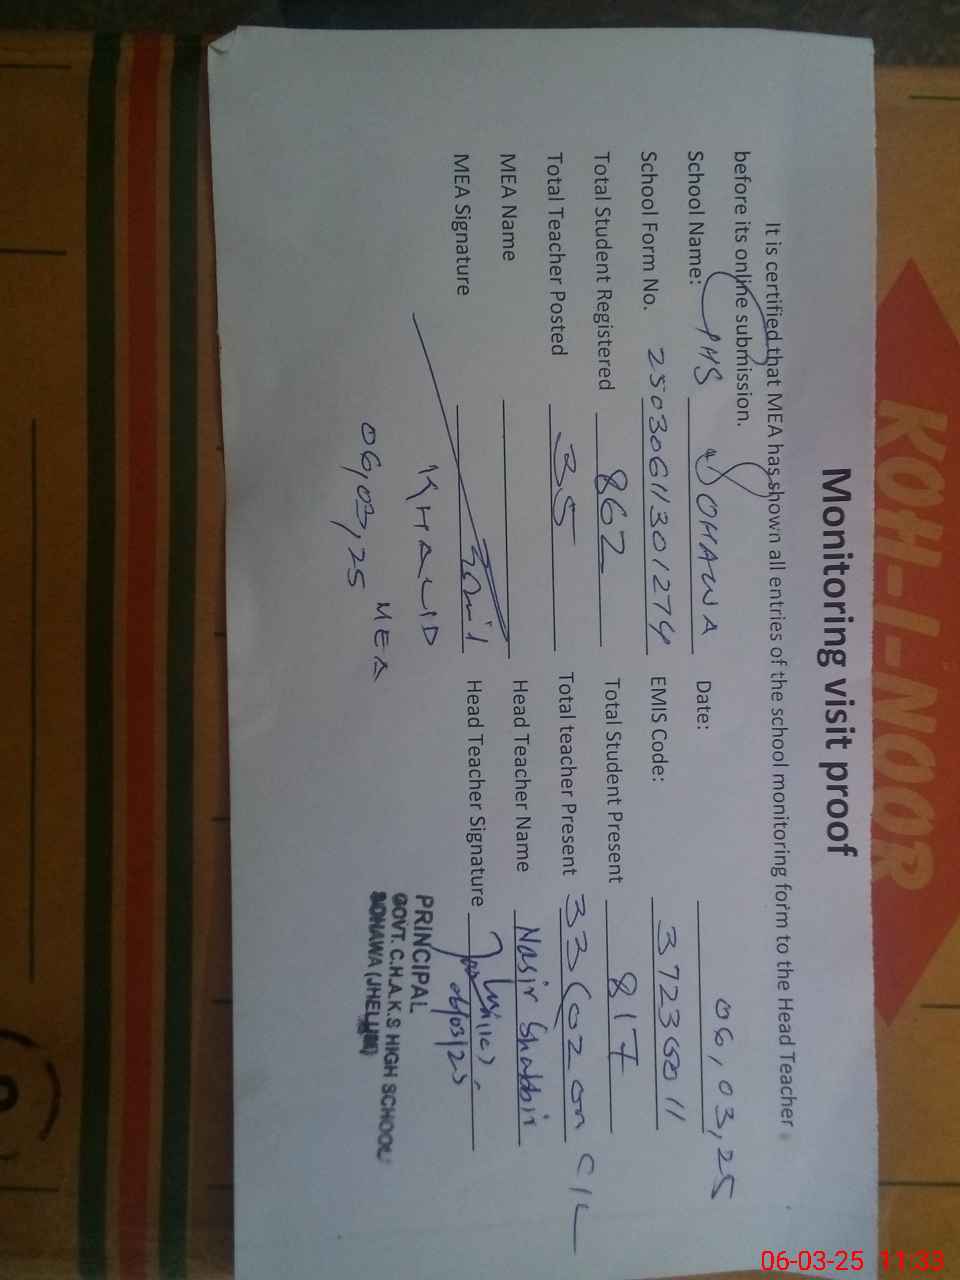 KOH-I-NOOR
Monitoring visit proof
It is certified that MEA has shown all entries of the school monitoring form to the Head Teacher
before its online submission.
School Name: GHS SOHAWA Date: 06,03,25
School Form No. 25030611301274 EMIS Code: 37230011
Total Student Registered 862 Total Student Present 817
Total Teacher Posted 35 Total teacher Present 33 (02 on C/L
MEA Name Head Teacher Name Nasir Shabbir
MEA Signature Head Teacher Signature
KHALID
MEA
06,03,25
06/03/25
PRINCIPAL
GOVT. C.H.A.K.S HIGH SCHOOL
SOHAWA (JHELUM)
06-03-25 11:33